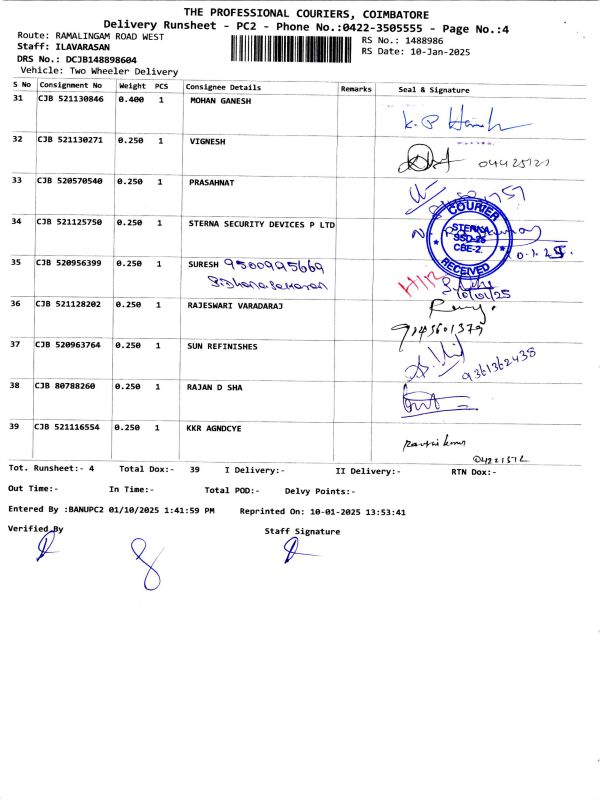 THE PROFESSIONAL COURIERS, COIMBATORE
Delivery Runsheet - PC2 - Phone No.:0422-3505555 - Page No.:4
Route: RAMALINGAM ROAD WEST
RS No.: 1488986
Staff: ILAVARASAN
RS Date: 10-Jan-2025
DRS No.: DCJB148898604
Vehicle: Two Wheeler Delivery
S No Consignment No Weight PCS Consignee Details Remarks Seal & Signature
31 CJB 521130846 0.400 1 MOHAN GANESH
32 CJB 521130271 0.250 1 VIGNESH
33 CJB 520570540 0.250 1 PRASAHNAT
34 CJB 521125750 0.250 1 STERNA SECURITY DEVICES P LTD
COURIER
STERNA
SSD-26
CBE-2.
RECEIVED
35 CJB 520956399 0.250 1 SURESH 9500995669
10/01/25
36 CJB 521128202 0.250 1 RAJESWARI VARADARAJ
9143601379
37 CJB 520963764 0.250 1 SUN REFINISHES
9361362438
38 CJB 80788260 0.250 1 RAJAN D SHA
39 CJB 521116554 0.250 1 KKR AGNDCYE
Tot. Runsheet:- 4 Total Dox:- 39 I Delivery:- II Delivery:- RTN Dox:-
Out Time:- In Time:- Total POD:- Delvy Points:-
Entered By :BANUPC2 01/10/2025 1:41:59 PM Reprinted On: 10-01-2025 13:53:41
Verified By Staff Signature